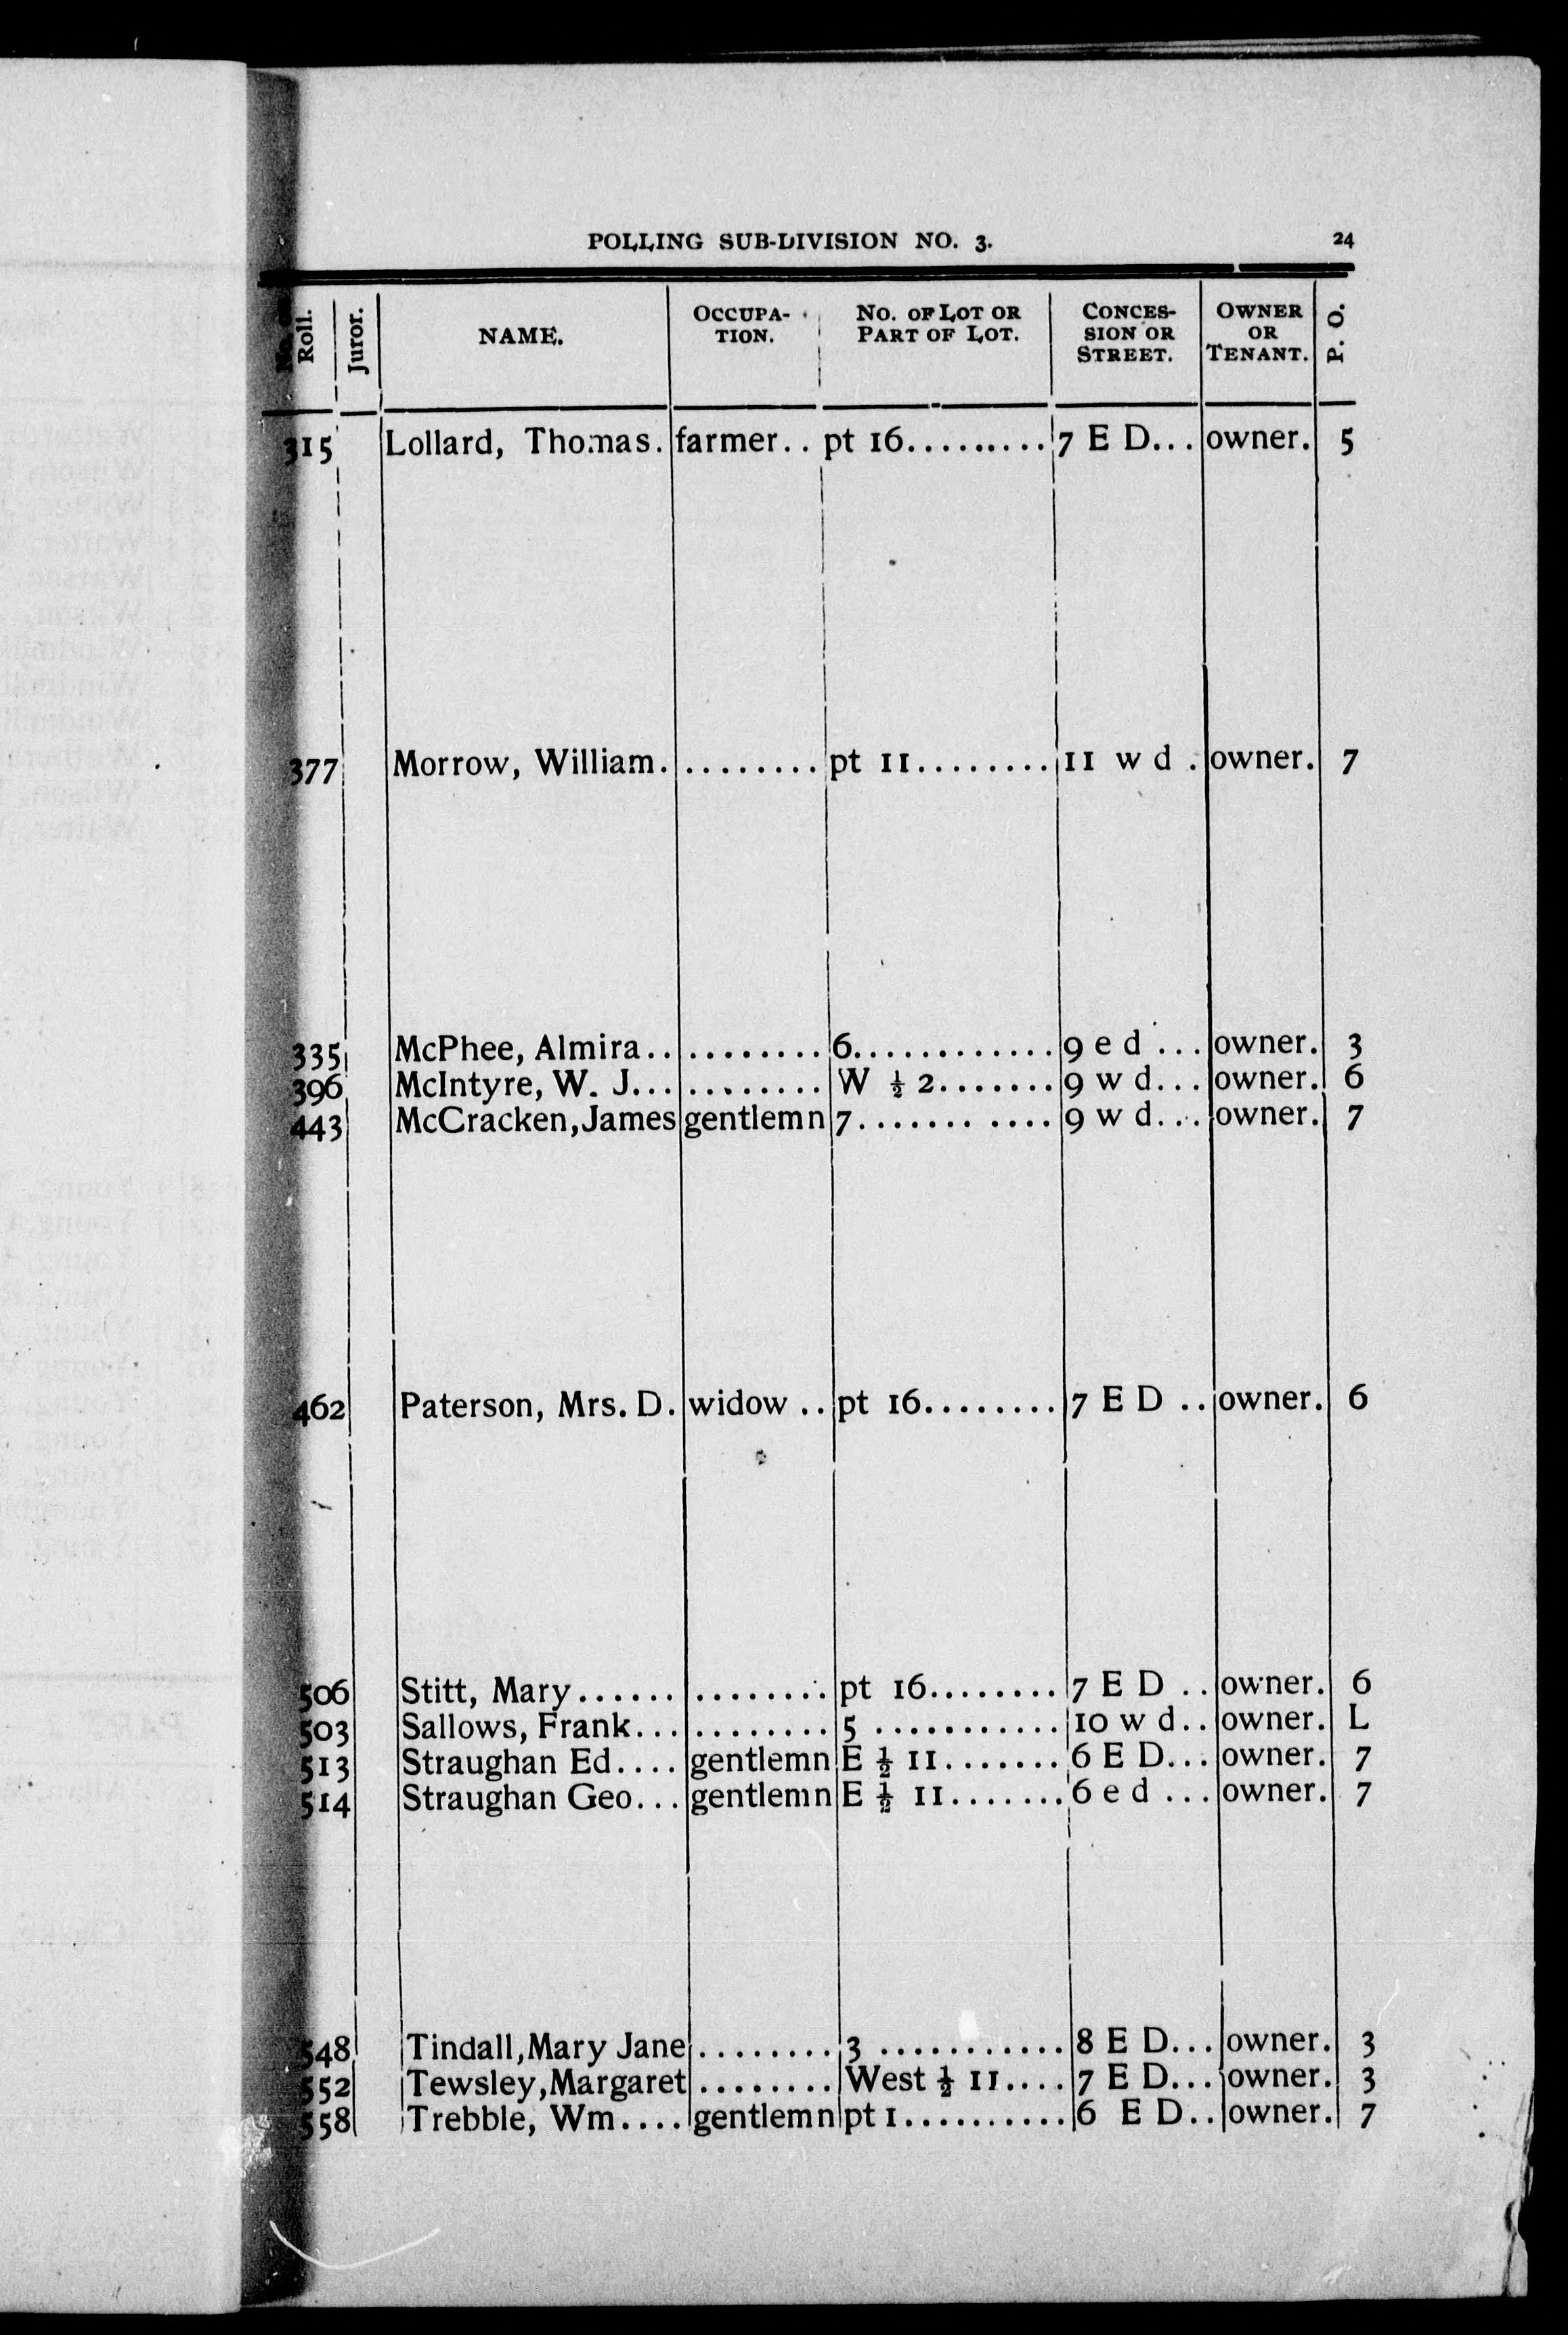 POLLING SUB-DIVISION NO. 3. 24
No. Roll. Juror. NAME. OCCUPA-TION. NO. OF LOT OR PART OF LOT. CONCES-SION OR STREET. OWNER OR TENANT. P. O.
315 Lollard, Thomas. farmer.. pt 16......... 7 E D... owner. 5
377 Morrow, William. ......... pt 11........ 11 w d . owner. 7
335 McPhee, Almira.. ......... 6............ 9 e d ... owner. 3
396 McIntyre, W. J... ......... W ½ 2....... 9 w d... owner. 6
443 McCracken,James gentlemn 7....... .... 9 w d... owner. 7
462 Paterson, Mrs. D. widow .. pt 16........ 7 E D .. owner. 6
506 Stitt, Mary...... ........ pt 16........ 7 E D .. owner. 6
503 Sallows, Frank... ......... 5 ........... 10 w d.. owner. L
513 Straughan Ed.... gentlemn E ½ 11....... 6 E D... owner. 7
514 Straughan Geo... gentlemn E ½ 11....... 6 e d ... owner. 7
548 Tindall,Mary Jane ........ 3 ........... 8 E D... owner. 3
552 Tewsley,Margaret ........ West ½ 11.... 7 E D... owner. 3
558 Trebble, Wm.... gentlemn pt 1.......... 6 E D.. owner. 7